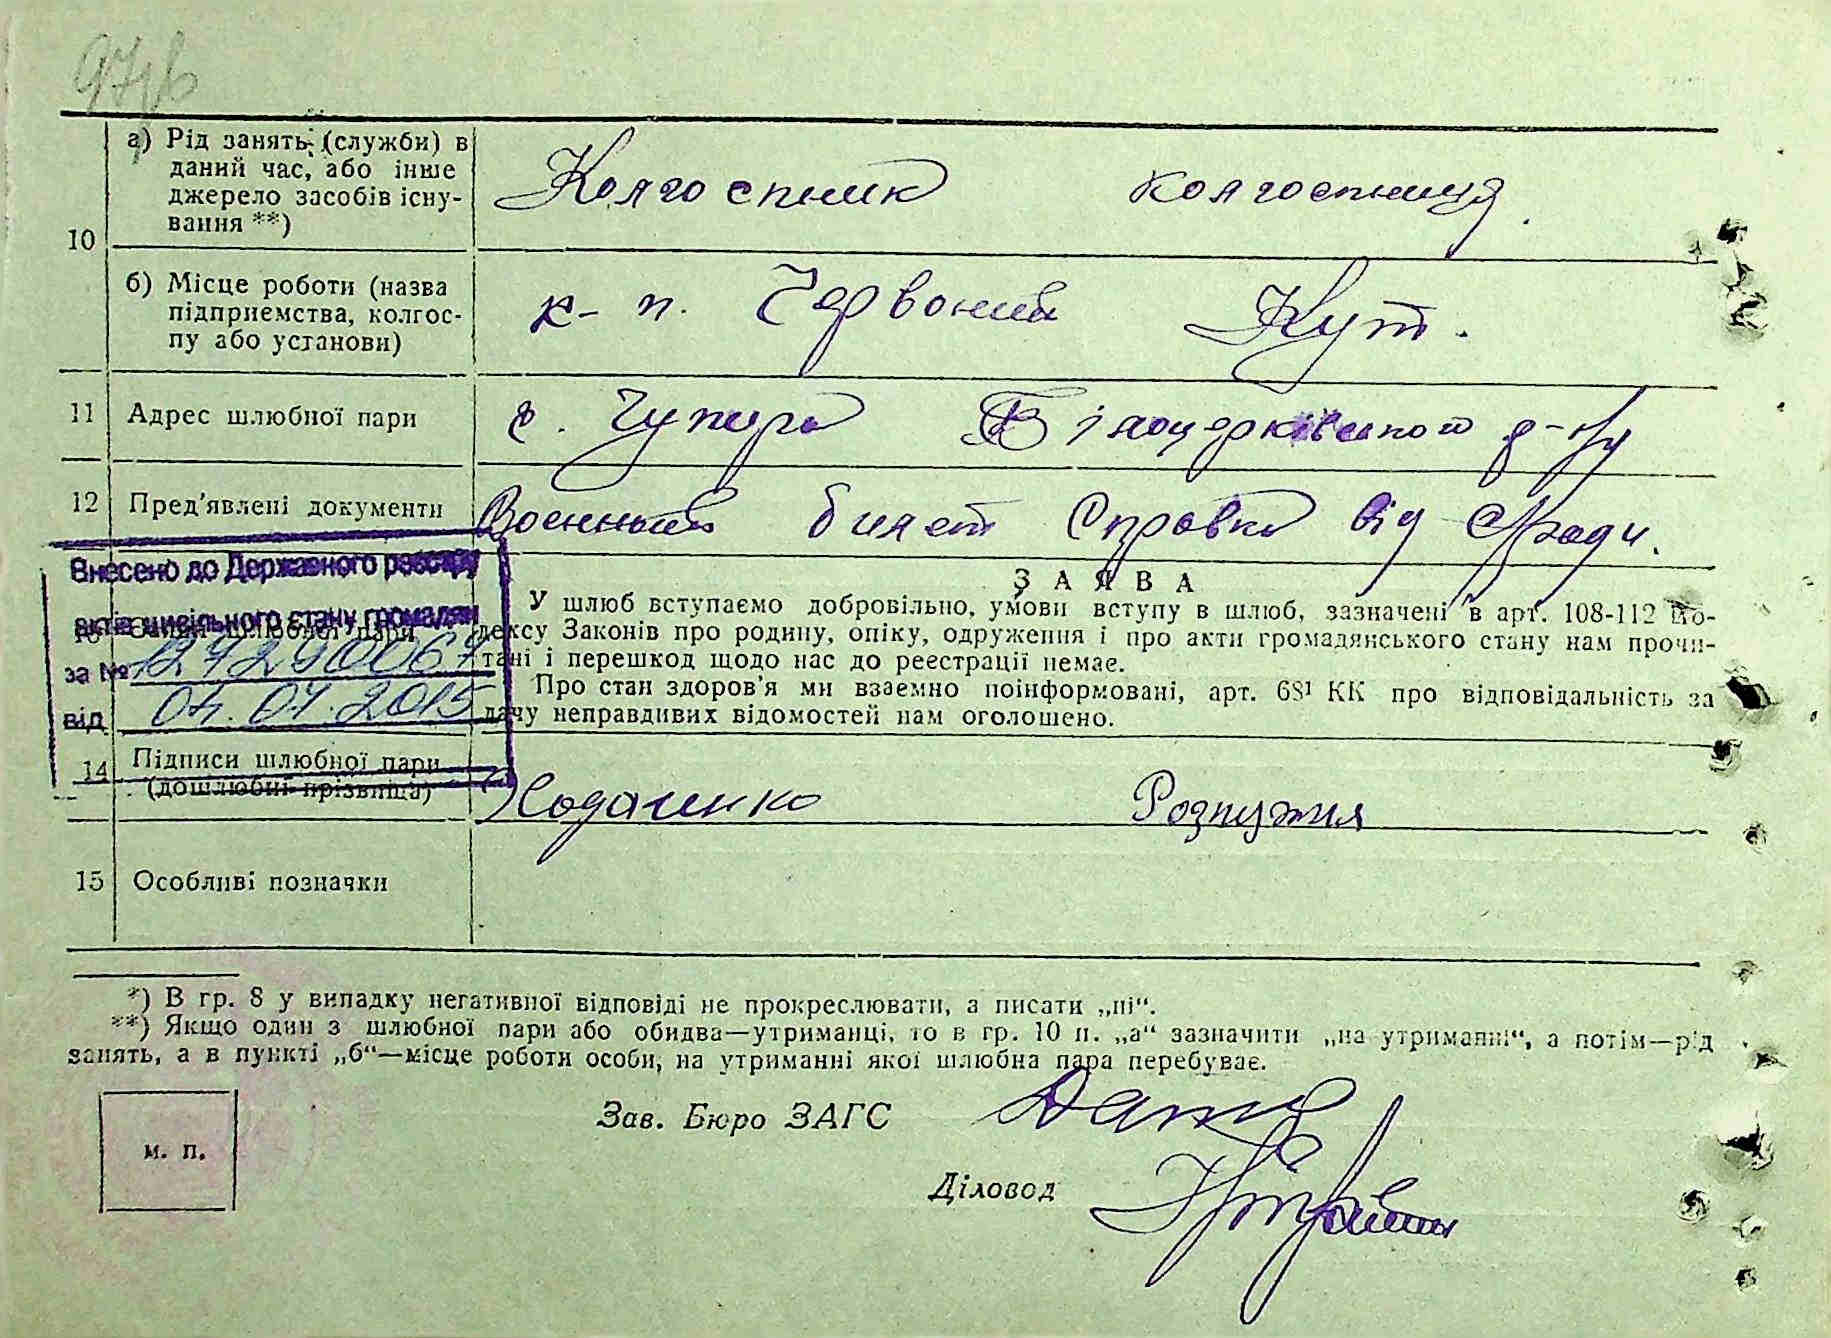 10
а) Рід занять (службы) в
даний час, або інше
джерело засобів існу-
вання **)
Колгоспник колгоспниця.
б) Місце роботи (назва
підприємства, колгос-
пу або установи)
к-п. Червоний Кут.
11 Адрес шлюбної пари
с. Чупира Білоцерківського р-ну
12 Пред'явлені документи
Военный билет Справка від с/ради.
Внесено до Державного реєстру
актів цивільного стану громадян
за №
від 04.07.2015
ЗАЯВА
У шлюб вступаємо добровільно, умови вступу в шлюб, зазначені в арт. 108-112 Ко-
дексу Законів про родину, опіку, одруження і про акти громадянського стану нам прочи-
тані і перешкод щодо нас до реєстрації немає.
Про стан здоров'я ми взаємно поінформовані, арт. 68¹ КК про відповідальність за
дачу неправдивих відомостей нам оголошено.
14 Підписи шлюбної пари
(дошлюбні прізвища)
Розпутня
15 Особливі позначки
*) В гр. 8 у випадку негативної відповіді не прокреслювати, а писати „ні“.
**) Якщо один з шлюбної пари або обидва—утриманці, то в гр. 10 п. „а“ зазначити „на утриманні“, а потім—рід
занять, а в пункті „б“—місце роботи особи, на утриманні якої шлюбна пара перебуває.
м. п.
Зав. Бюро ЗАГС
Діловод